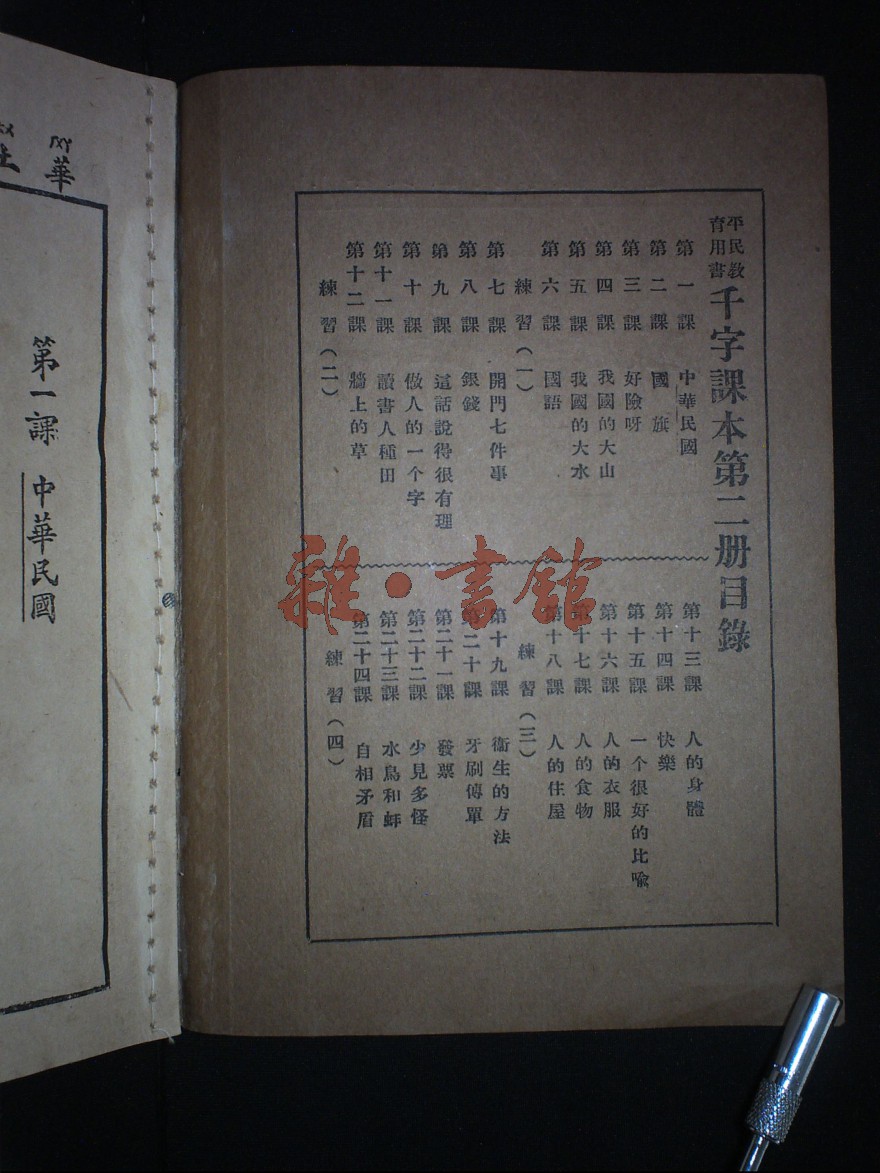 平民教
育用書
千字課本第二册目錄
第一課 中華民國
第二課 國旗
第三課 好險呀
第四課 我國的大山
第五課 我國的大水
第六課 國語
練習（一）
第七課 開門七件事
第八課 銀錢
第九課 這話說得很有理
第十課 做人的一个字
第十一課 讀書人種田
第十二課 牆上的草
練習（二）
第十三課 人的身體
第十四課 快樂
第十五課 一个很好的比喩
第十六課 人的衣服
第十七課 人的食物
第十八課 人的住屋
練習（三）
第十九課 衞生的方法
第二十課 牙刷傳單
第二十一課 發票
第二十二課 少見多怪
第二十三課 水鳥和蚌
第二十四課 自相矛盾
練習（四）
雜·書館
華
第一課 中華民國